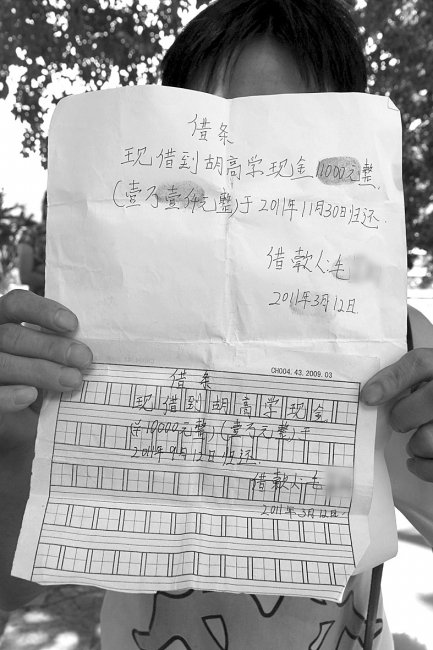 借条
现借到胡高学现金11000元整.
(壹万壹仟元整)于2011年11月30日归还.
借款人:毛
2011年3月12日.
CH004.43.2009.03
借条
现借到胡高学现金
10000元整(壹万元整)于
2011年9月13日归还.
借款人:毛
2011年3月12日.